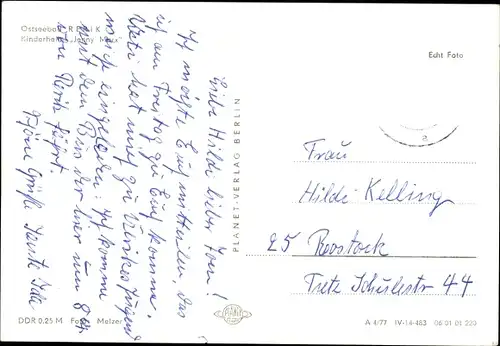 Ostseebad
Kinderheim "Jenny Marx"
Echt Foto
Liebe Hilde, lieber
Ich möchte Euch mitteilen, das
ich am Freitag zu Euch komme.
hat mich zu
mich eingeladen. Ich komme
mit dem Bus der hier um 8
von
Schöne Grüße Tante
PLANET-VERLAG BERLIN
PLANET
Frau
Hilde Kelling
25 Roostock
Fretz Schulestr 44
DDR 0.25 M Foto: Melzer
A 4/77 IV-14-483 06 01 01 220